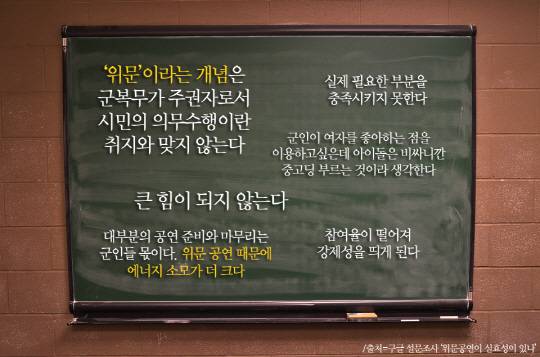 ‘위문’이라는 개념은
군복무가 주권자로서
시민의 의무수행이란
취지와 맞지 않는다
실제 필요한 부분을
충족시키지 못한다
군인이 여자를 좋아하는 점을
이용하고싶은데 아이돌은 비싸니깐
중고딩 부르는 것이라 생각한다
큰 힘이 되지 않는다
대부분의 공연 준비와 마무리는
군인들 몫이다. 위문 공연 때문에
에너지 소모가 더 크다
참여율이 떨어져
강제성을 띄게 된다
/출처=구글 설문조사 '위문공연이 실효성이 있나'